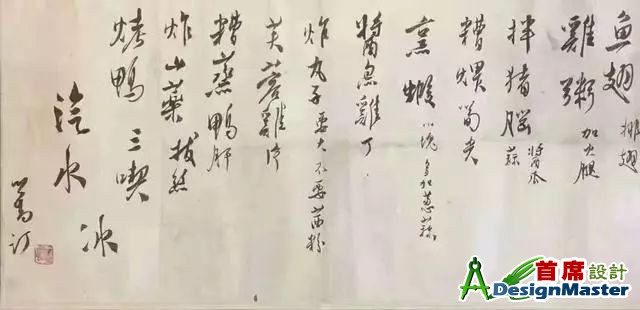 魚翅 排翅
雞粥 加火腿
拌猪腦 醬瓜 蒜
糟煨
烹蝦 小塊 多加蔥蒜
醬雞丁
炸丸子 要大 不要粉
芙蓉雞片
糟蒸鴨肝
炸山藥 拔絲
烤鴨 三喫
汽水 冰
心畬訂
首席設計
DesignMaster